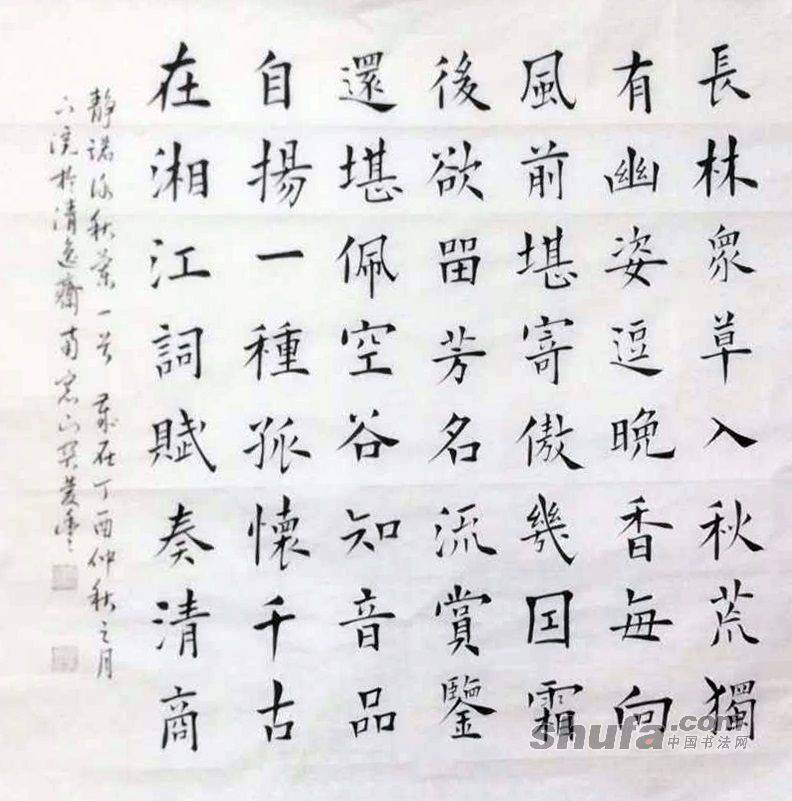 長林眾草入秋荒獨
有幽姿逗晚香每向
風前堪寄傲幾因霜
後欲留芳名流賞鑒
還堪佩空谷知音品
自揚一種孤懷千古
在湘江詞賦奏清商
靜諾詠秋蘭一首 歲在丁酉仲秋之月
於清逸齋南窗
shufa.com
中国书法网